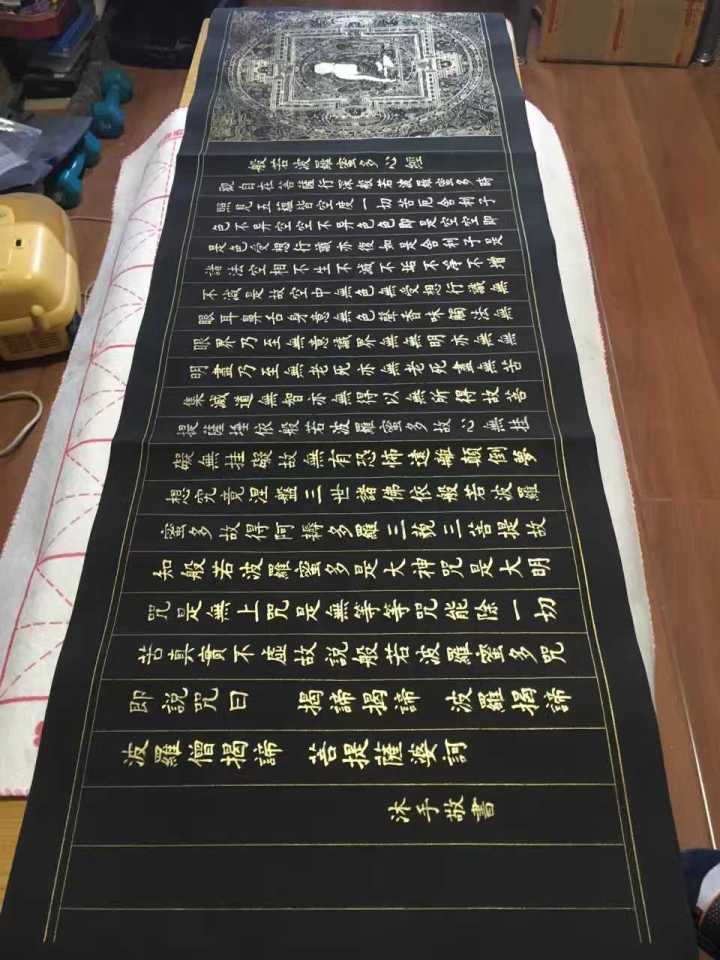 般若波羅蜜多心經
觀自在菩薩行深般若波羅蜜多時
照見五蘊皆空度一切苦厄舍利子
色不異空空不異色色即是空空即
是色受想行識亦復如是舍利子是
諸法空相不生不滅不垢不淨不增
不減是故空中無色無受想行識無
眼耳鼻舌身意無色聲香味觸法無
眼界乃至無意識界無無明亦無無
明盡乃至無老死亦無老死盡無苦
集滅道無智亦無得以無所得故菩
提薩埵依般若波羅蜜多故心無掛
礙無挂礙故無有恐怖遠離顛倒夢
想究竟涅盤三世諸佛依般若波羅
蜜多故得阿耨多羅三藐三菩提故
知般若波羅蜜多是大神咒是大明
咒是無上咒是無等等咒能除一切
苦真實不虛故說般若波羅蜜多咒
即說咒曰 揭諦揭諦 波羅揭諦
波羅僧揭諦 菩提薩婆訶
沐手敬書